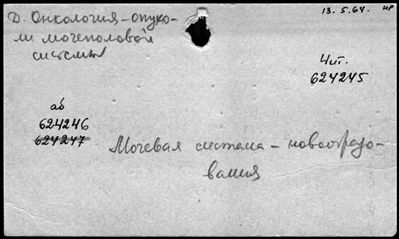 13.5.64. нр
Д. Онкология – опухо-
ли мочеполовой
системы
Чит.
624245
аб
624246
624247
Мочевая система – новообразо-
вания